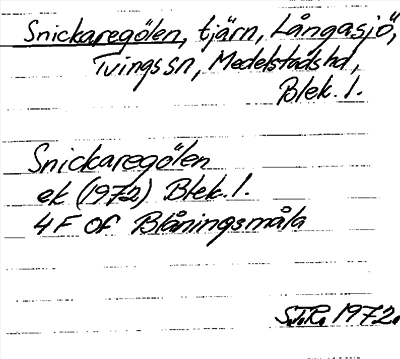 Snickaregölen, tjärn, Långasjö,
Tvings sn, Medelstads hd,
Blek. l.
Snickaregölen
ek (1972) Blek. l.
4F Of Blåningsmåla
S.T.R. 1972.